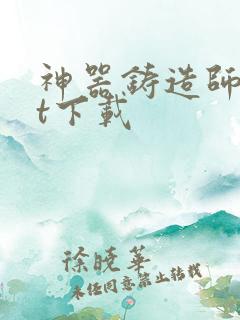 神器鑄造師
t下載
徐曉華
未经同意禁止转载